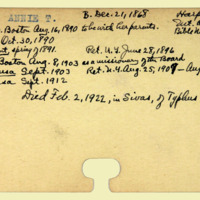 ANNIE T.
B. Dec. 21, 1868
Boston Aug. 16, 1890 to be with her parents.
Oct. 30, 1890
spring of 1891. Ret. U.S. June 28, 1896
Boston Aug. 8, 1903 as a missionary of the Board
Sept. 1903 Ret. U.S. Aug. 25, 1909
Sept. 1912
Died Feb. 2, 1922, in Sivas, of Typhus